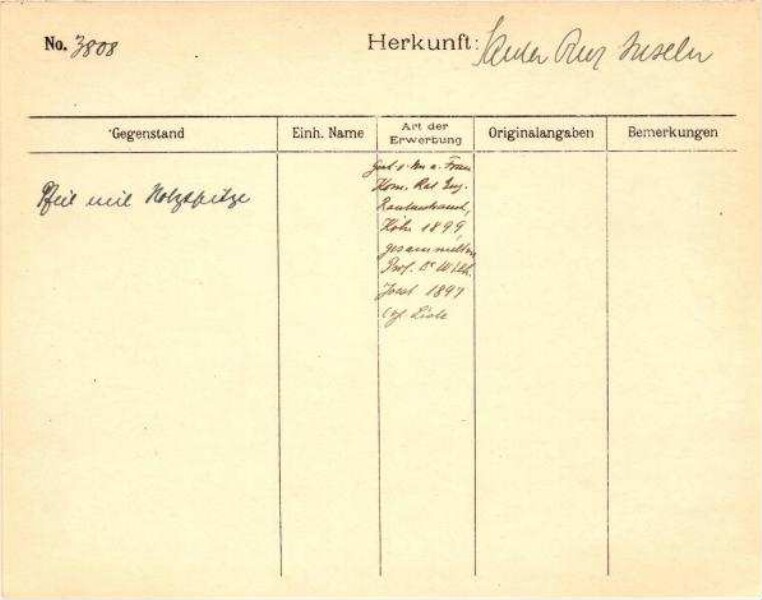 No. 3808
Herkunft: Santa Cruz Inseln
Gegenstand
Einh. Name
Art der Erwerbung
Originalangaben
Bemerkungen
Pfeil mit Holzspitze
Gesch. v. Hrn u. Frau
Kom. Rat Eug.
Rautenstrauch,
Köln 1899,
gesammelt v.
Prof. Dr Wilh.
Joest 1897
cf Liste